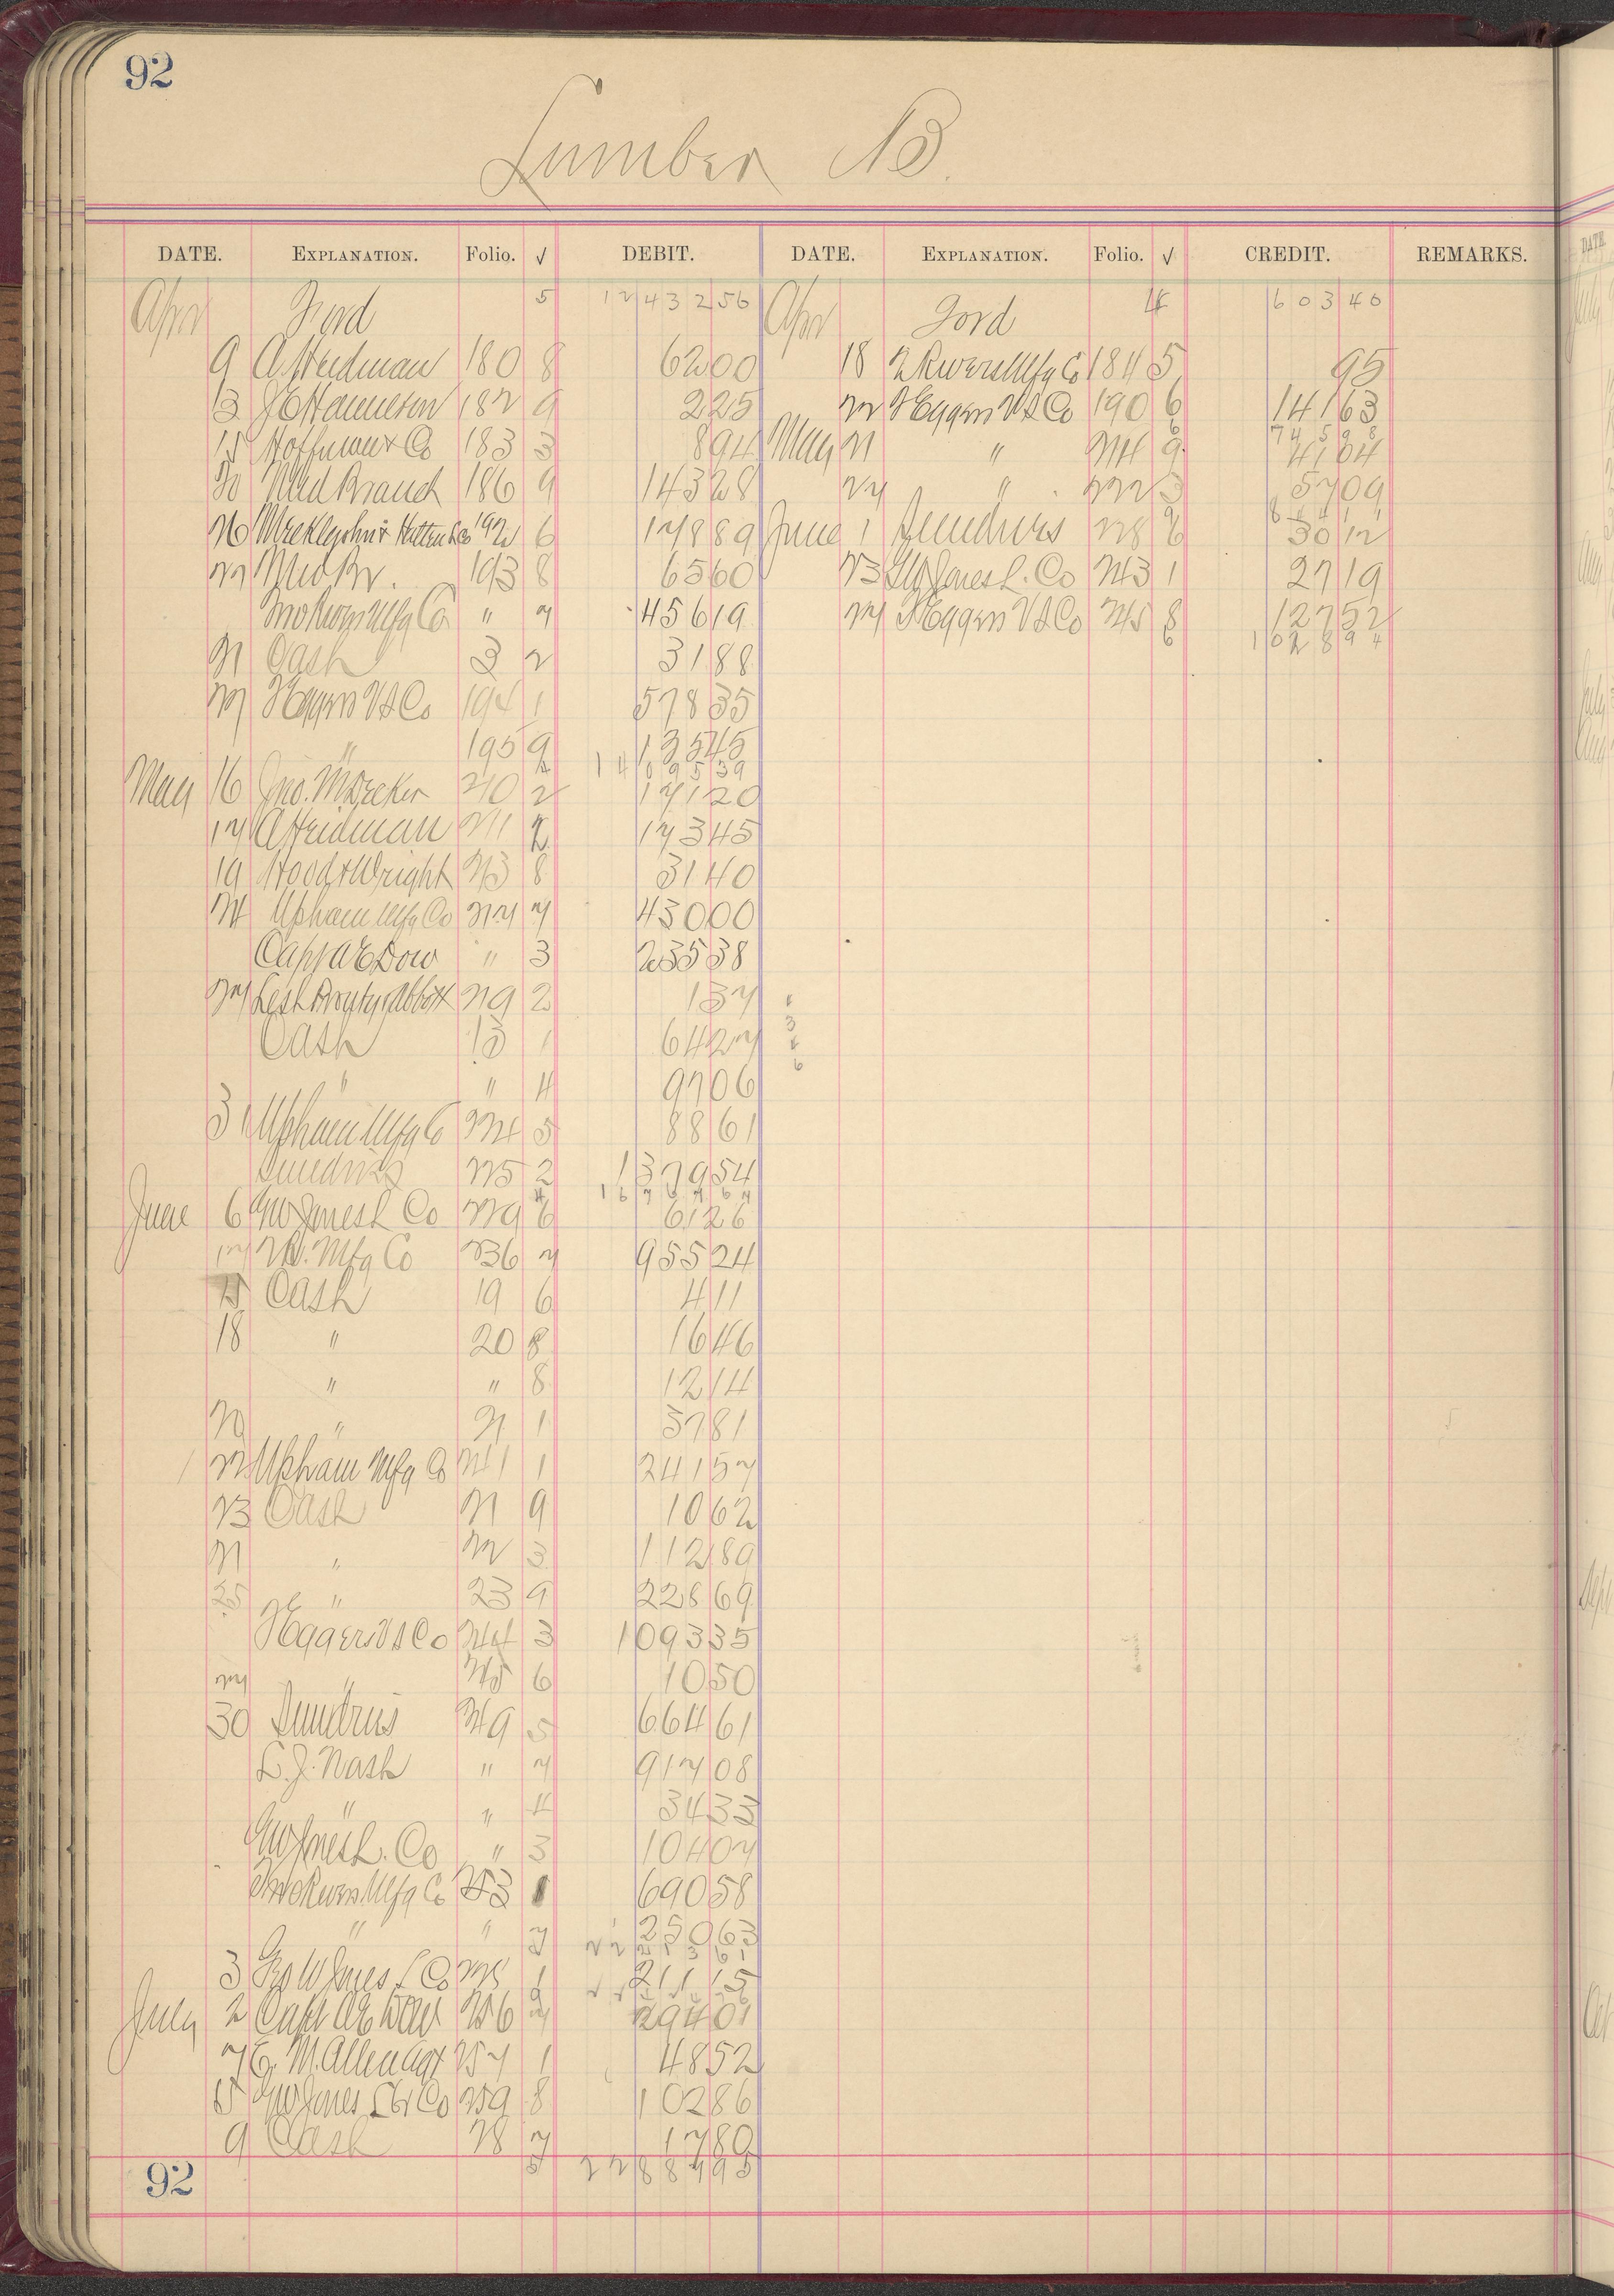 92
Lumber B.
DATE. EXPLANATION. Folio. √ DEBIT. DATE. EXPLANATION. Folio. √ CREDIT. REMARKS.
Apr Ford 5 12432 56 Apr Ford 4 603 40
9 A Heidman 180 8 62 00 18 2 Rivers Mfg Co 184 5 95
13 182 9 2 25 22 Eggers V S Co 190 6 141 63
6 745 98
15 Hoffman & Co 183 3 8 94 May 21 " 214 9 41 04
20 Med Branch 186 9 143 28 27 " 222 3 57 09
26 192 6 178 89 June 1 Sundries 228 6 30 12
27 Med Br. 193 8 65 60 23 GW Jones L. Co 243 1 27 19
Two Rivers Mfg Co " 7 456 19 27 Eggers V S Co 245 8 127 52
6 1028 94
21 Cash 3 2 31 88
27 Eggers V S Co 194 1 578 35
" 195 9 135 45
14095 39
May 16 Jno. M Decker 210 2 171 20
17 A Heidman 211 2 173 45
19 Hood & Wright 213 8 31 40
24 Upham Mfg Co 217 7 430 00
Capt A E Dow " 3 235 38
27 Lesh Prouty & Abbott 219 2 1 37
Cash 13 1 64 27
" " 4 97 06
31 Upham Mfg Co 224 5 88 61
Sundries 225 2 1379 54
4 16767 67
June 6 GW Jones L Co 229 6 61 26
17 T R. Mfg Co 236 7 955 24
15 Cash 19 6 4 11
18 " 20 8 16 46
" " 8 12 14
20 " 21 1 37 81
22 Upham Mfg Co 241 1 241 57
23 Cash 21 9 10 62
21 " 22 3 112 89
25 " 23 9 228 69
Eggers V S Co 244 3 1093 35
27 " 245 6 10 50
30 Sundries 249 5 664 61
L. J. Nash " 7 917 08
" " 4 34 33
GW Jones L. Co " 3 104 07
Two Rivers Mfg Co 253 1 690 58
" " 7 250 63
3 Geo W Jones L Co 1 211 15
July 2 Capt A E Dow 256 7 294 01
7 E. M. Allen Agt 257 1 48 52
15 GW Jones Lbr Co 259 8 102 86
9 Cash 28 7 17 80
5 22887 95
92